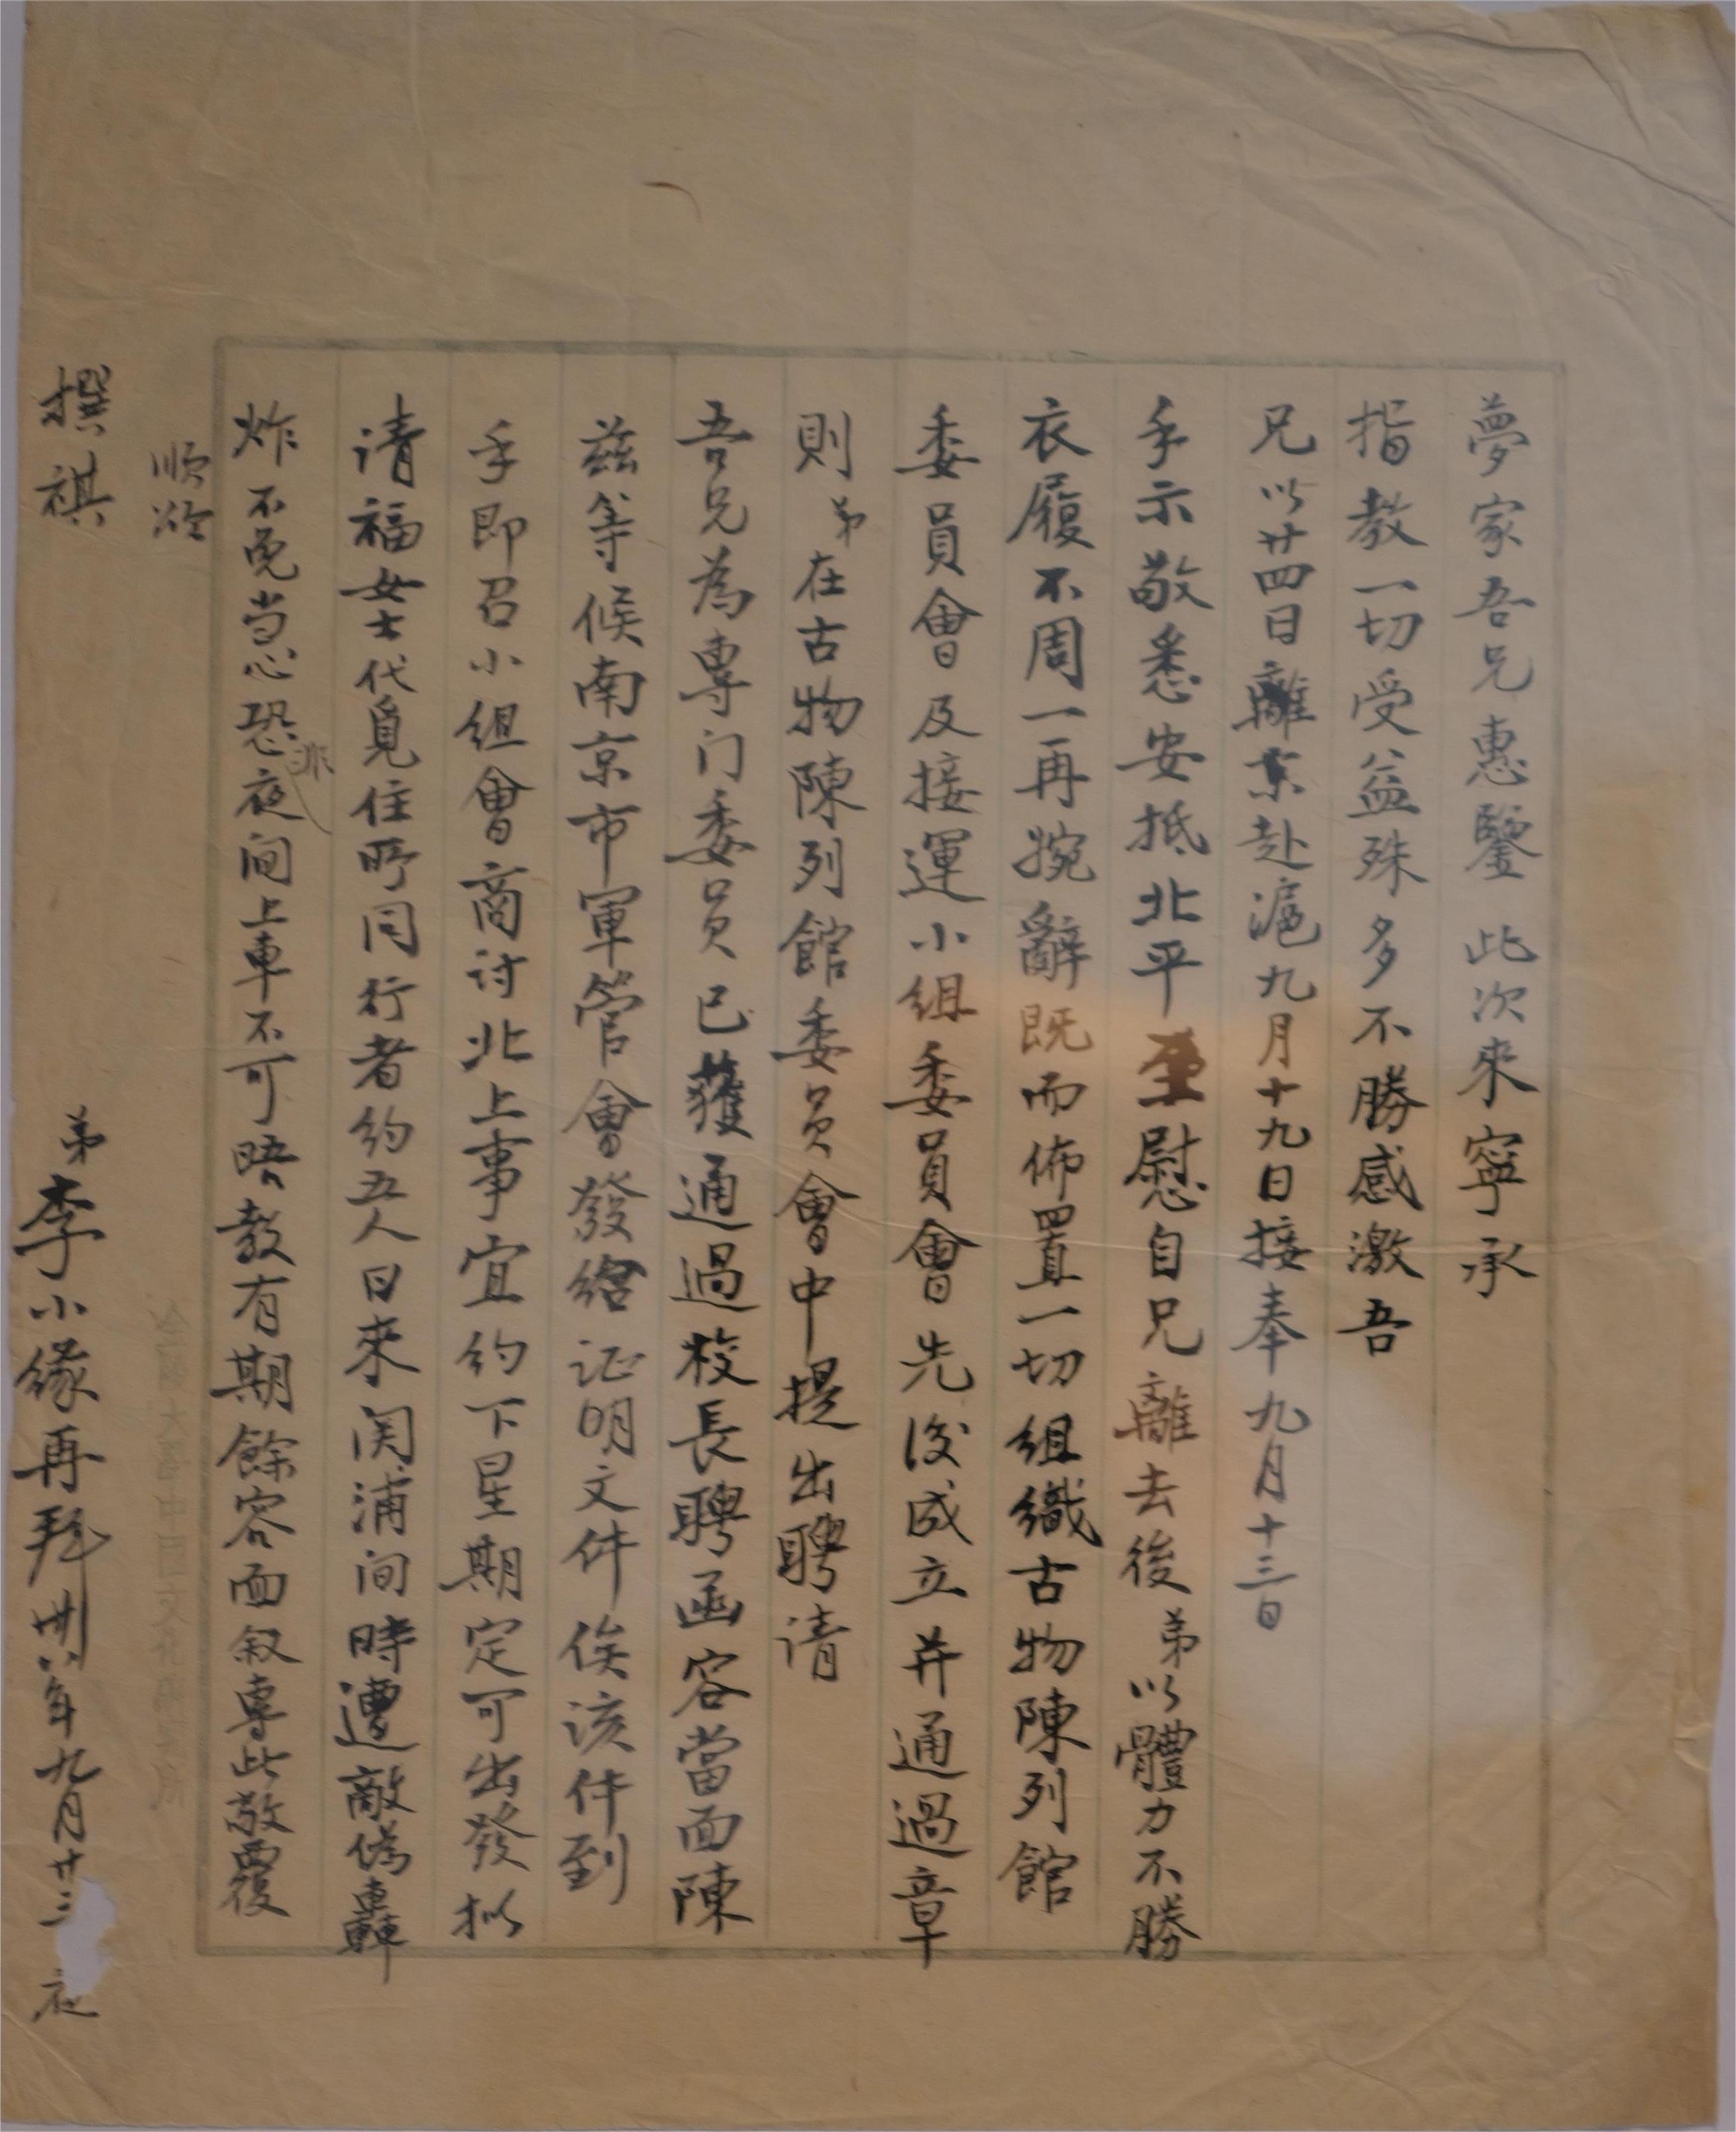 夢家吾兄惠鑒 此次來寧承
指教一切受益殊多不勝感激吾
兄以廿四日離京赴滬九月十九日接奉九月十三日
手示敬悉安抵北平至慰自兄離去後弟以體力不勝
衣履不周一再婉辭既而佈置一切組織古物陳列館
委員會及接運小組委員會先後成立并通過章
則弟在古物陳列館委員會中提出聘请
吾兄為專门委员已獲通過校長聘函容當面陳
兹等候南京市軍管會發给证明文件俟该件到
手即召小组會商讨北上事宜约下星期定可出發拟
请福女士代覓住所同行者约五人日來闵浦间時遭敵偽轟
炸不免当心恐非夜间上車不可晤教有期餘容面叙專此敬覆
順頌
撰祺
弟李小缘再拜卅八年九月廿三夜
金陵大學中国文化研究所